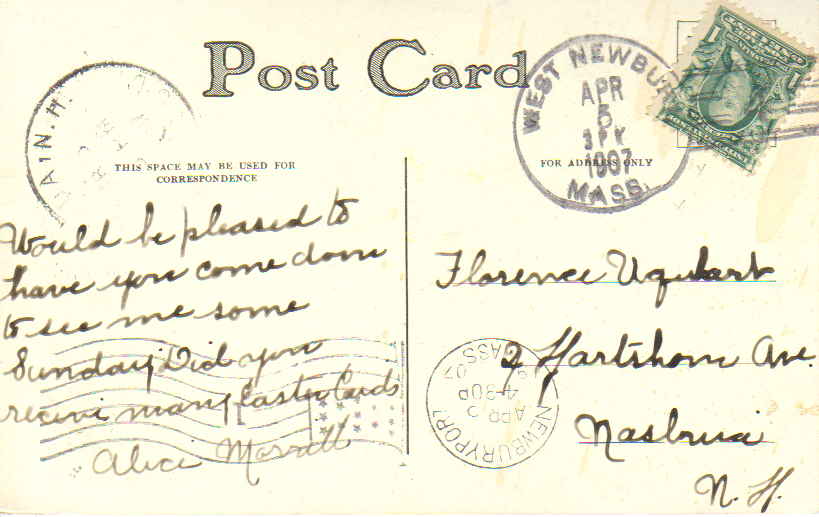 Post Card
WEST NEWBU
APR
5
3 PM
1907
MASS.
THIS SPACE MAY BE USED FOR
CORRESPONDENCE
FOR ADDRESS ONLY
Would be pleased to
have you come down
to see me some
Sunday. Did you
receive many Easter Cards
Alice Morrill
Florence Urquhart
2 Hartshorn Ave.
Nashua
N. H.
NEWBURYPORT
APR 5
4-30P
MASS.
AIN.H.
1